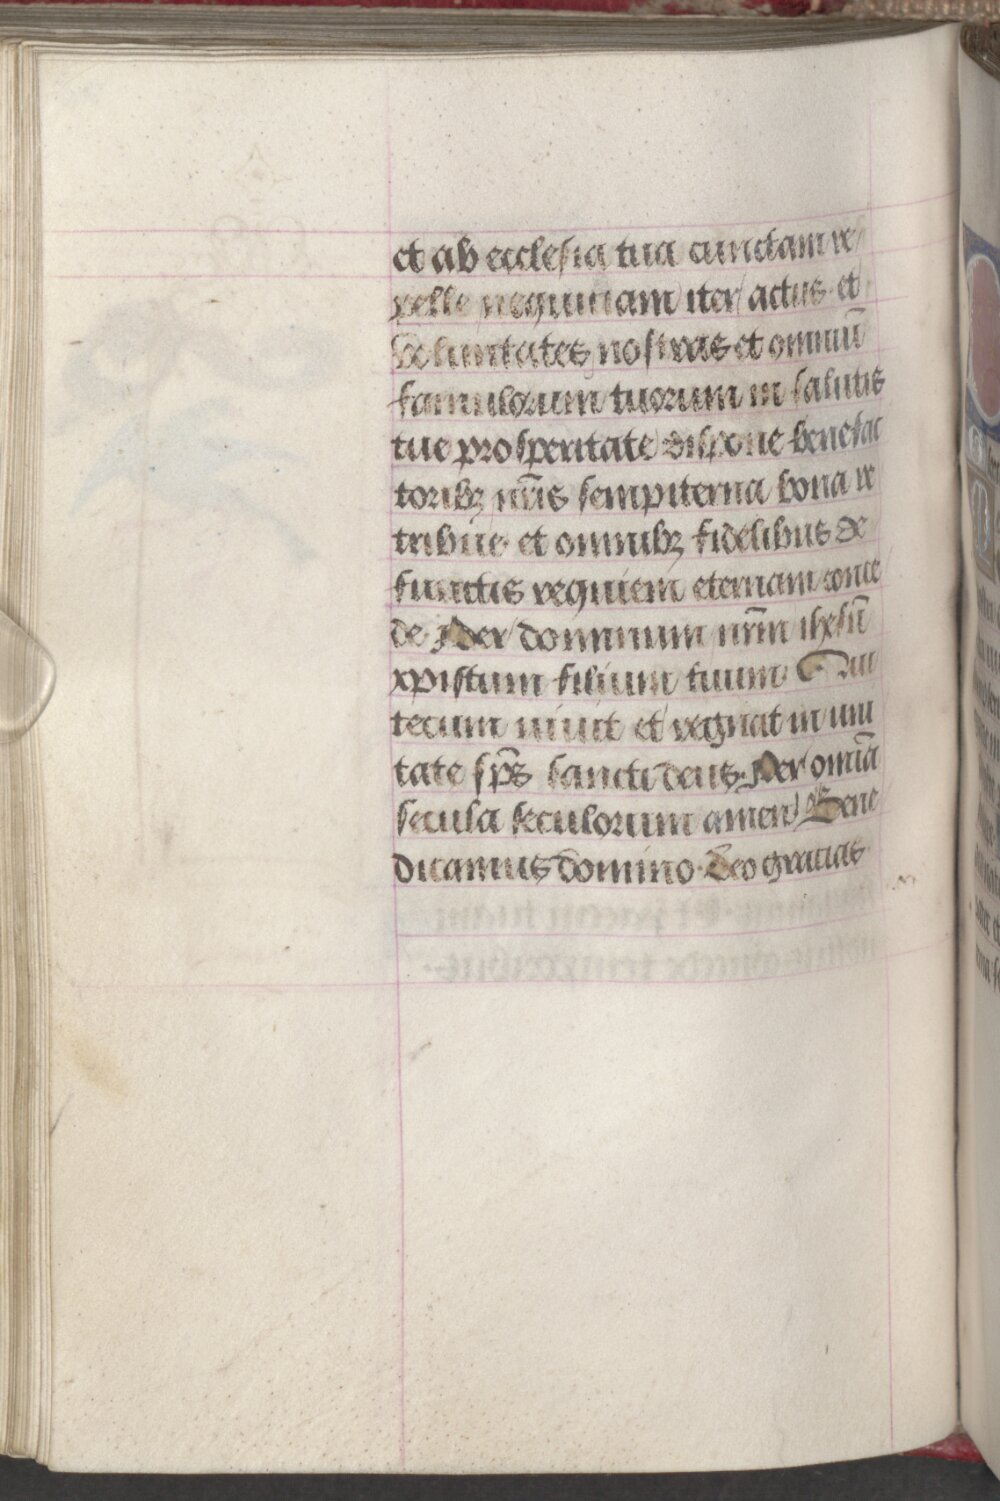 et ab ecclesia tua cunctam re
pelle nequitiam iter actus et
voluntates nostras et omniū
famulorum tuorum in salutis
tue prosperitate dispone benefac
toribꝫ nr̄is sempiterna bona re
tribue et omnibꝫ fidelibus de
functis requiem eternam conce
de. Per dominum nr̄m ihesū
xpistum filium tuum Qui
tecum viuit et regnat in uni
tate sp̄s sancti deus. Per om̄ia
secula seculorum amen Bene
dicamus domino. Deo gracias